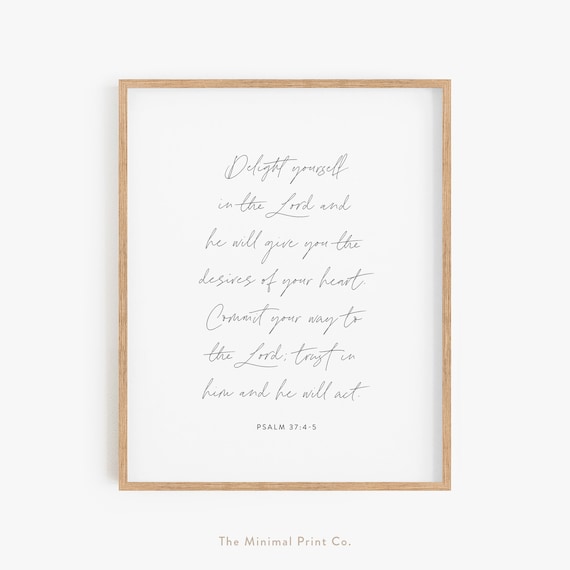 Delight yourself
in the Lord and
he will give you the
desires of your heart.
Commit your way to
the Lord; trust in
him and he will act.
PSALM 37:4-5
The Minimal Print Co.